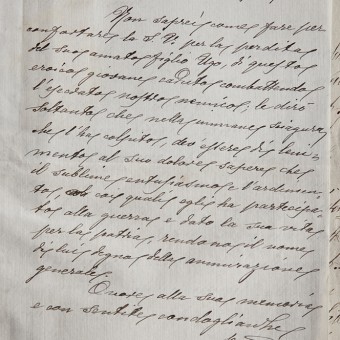 Non saprei come fare per
confortare la S. V. per la perdita
del suo amato figlio Ugo, di questo
eroico giovane caduto combattendo
l'esecrato nostro nemico; le dirò
soltanto che nella immane sciagura
che l'ha colpito, dev'essere di leni-
mento al suo dolore sapere che
il sublime entusiasmo e l'ardimen-
to, coi quali egli ha partecipa-
to alla guerra e dato la sua vita
per la patria, rendono il nome
di lui degno della ammirazione
generale.
Onore alla sua memoria
e con sentite condoglianze